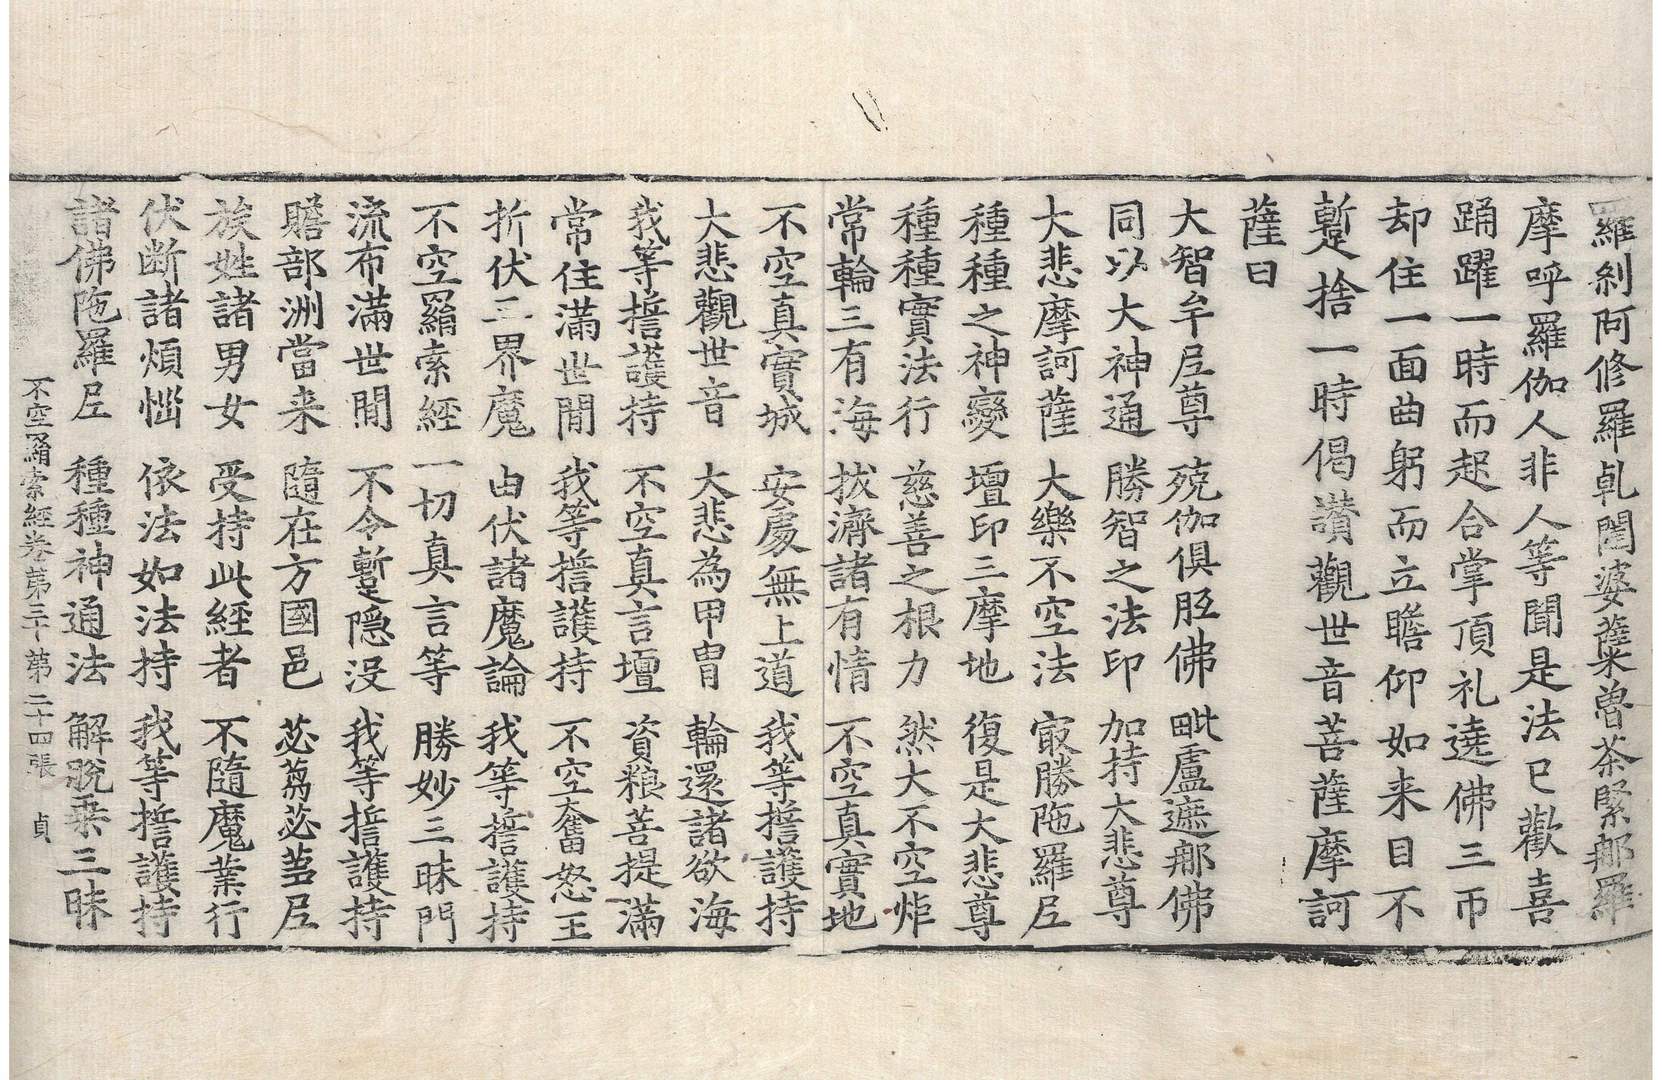 羅剎阿修羅乹闥婆櫱嚕荼緊那羅
摩呼羅伽人非人等聞是法已歡喜
踊躍一時而起合掌頂礼遶佛三帀
却住一面曲躬而立瞻仰如来目不
蹔捨一時偈讃觀世音菩薩摩訶
薩曰
大智牟尼尊 殑伽俱胝佛 毗盧遮那佛
同以大神通 勝智之法印 加持大悲尊
大悲摩訶薩 大樂不空法 冣勝陁羅尼
種種之神變 壇印三摩地 復是大悲尊
種種實法行 慈善之根力 然大不空炬
常輪三有海 拔濟諸有情 不空真實地
不空真實城 安處無上道 我等擔護持
大悲觀世音 大悲為甲冑 輪還諸欲海
我等擔護持 不空真言壇 資粮菩提滿
常住滿世閒 我等擔護持 不空奮怒王
折伏三界魔 由伏諸魔論 我等擔護持
不空羂索經 一切真言等 勝妙三昧門
流布滿世閒 不令蹔隱没 我等擔護持
贍部洲當来 隨在方國邑 苾蒭苾蒭尼
族姓諸男女 受持此經者 不隨魔業行
伏断諸煩惱 依法如法持 我等擔護持
諸佛陁羅尼 種種神通法 解脫乗三昧
不空羂索經卷第三十 第二十四張 貞